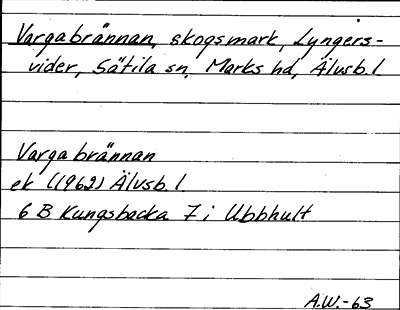 Vargabrännan, skogsmark, Lyngers-
vider, Sätila sn, Marks hd, Älvsb. l.
Vargabrännan
ek ((1962) Älvsb. l
6 B Kungsbacka 7 i Ubbhult
A.W.-63